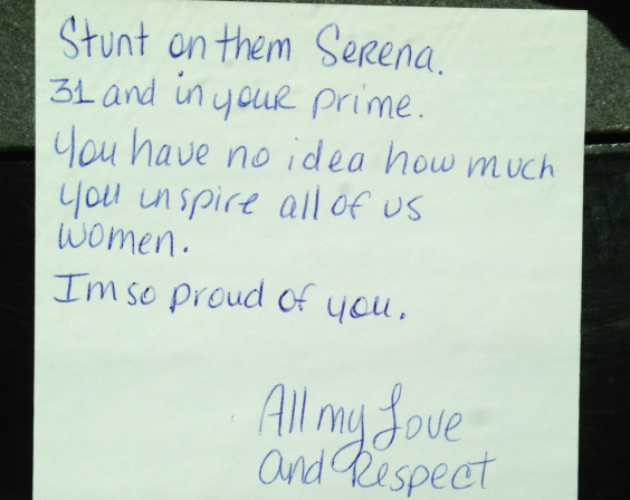 Stunt on them Serena.
31 and in your prime.
You have no idea how much
you inspire all of us
women.
Im so proud of you.
All my Love
and Respect